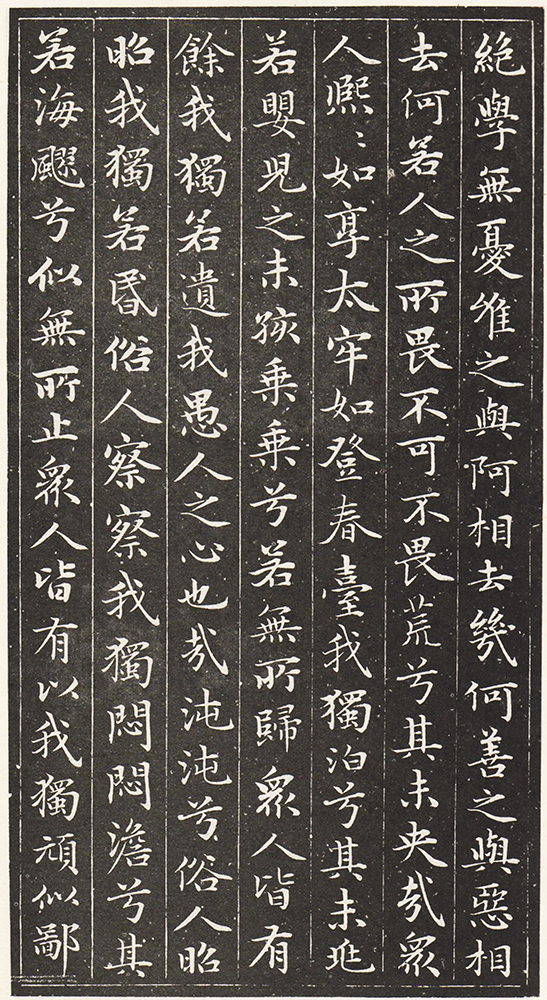 絕學無憂唯之與阿相去幾何善之與惡相
去何若人之所畏不可不畏荒兮其未央哉眾
人熙〻如享太牢如登春臺我獨泊兮其未兆
若嬰兒之未孩乗乗兮若無所歸眾人皆有
餘我獨若遺我愚人之心也哉沌沌兮俗人昭
昭我獨若昏俗人察察我獨悶悶澹兮其
若海飂兮似無所止眾人皆有以我獨頑似鄙